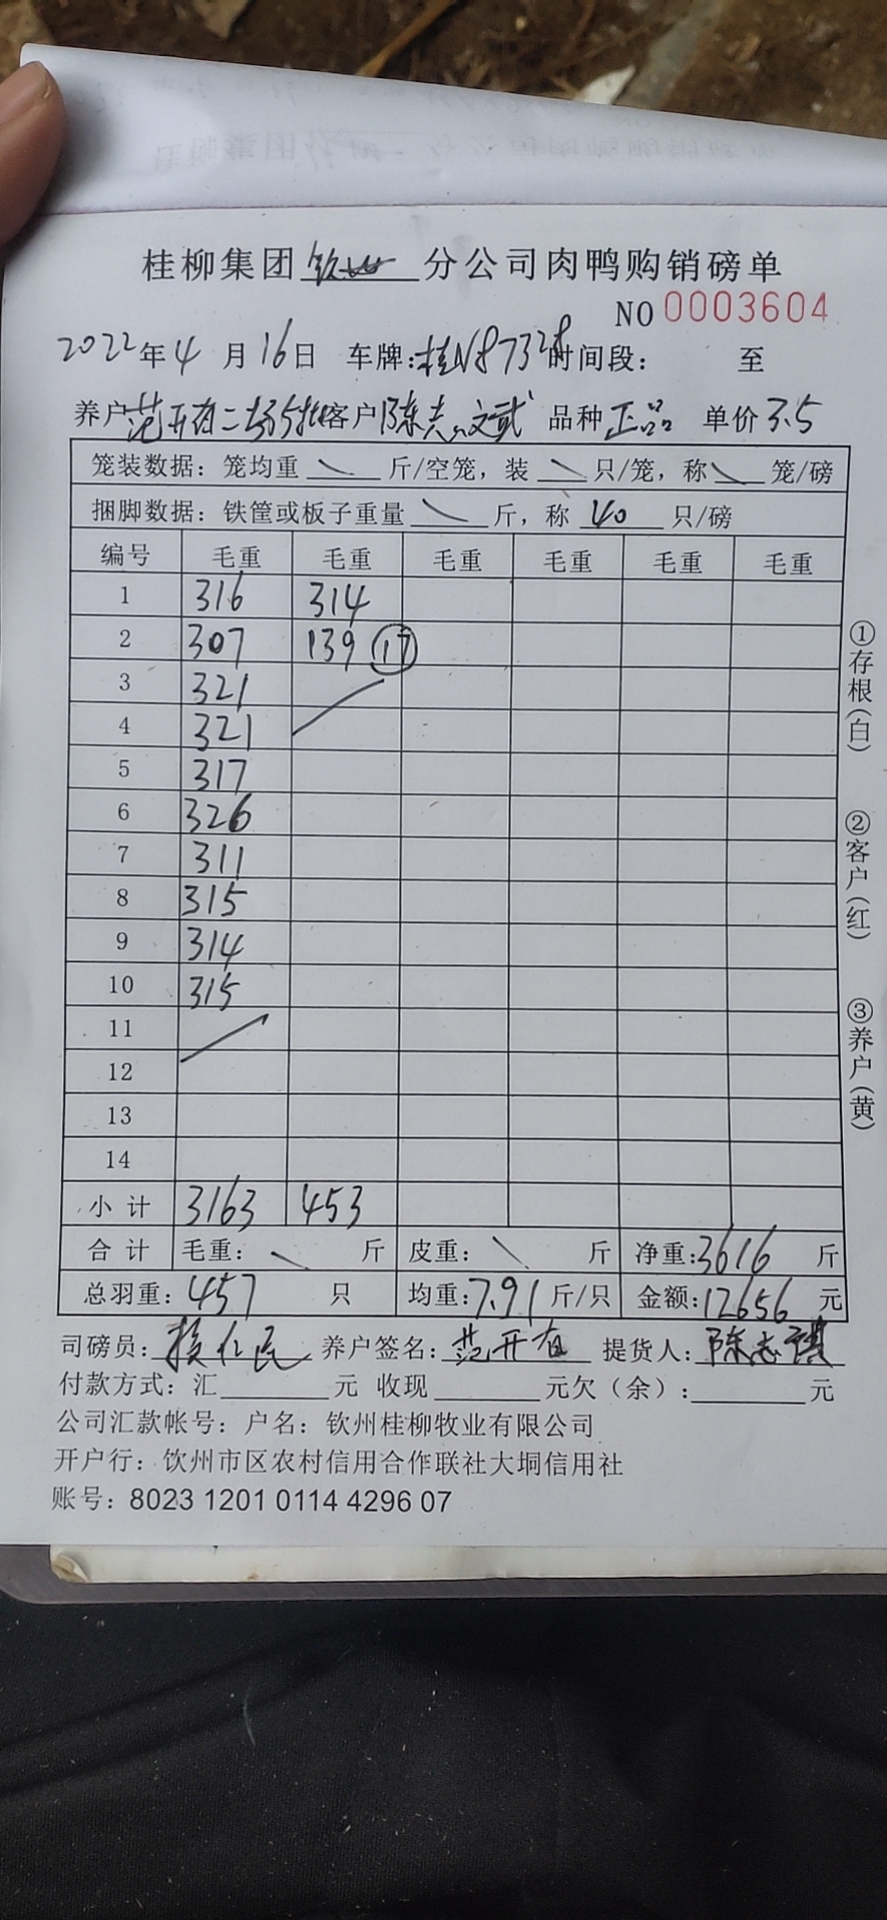 桂柳集团 钦州 分公司肉鸭购销磅单
NO 0003604
2022年4月16日 车牌:桂N87328 时间段: 至
养户 范开有二场5批 客户 陈志 品种 正品 单价 3.5
笼装数据: 笼均重 斤/空笼, 装 只/笼, 称 笼/磅
捆脚数据: 铁筐或板子重量 斤, 称 40 只/磅
编号 毛重 毛重 毛重 毛重 毛重 毛重
1 316 314
2 307 139 17
3 321
4 321
5 317
6 326
7 311
8 315
9 314
10 315
11
12
13
14
小计 3163 453
合计 毛重: 斤 皮重: 斤 净重:3616 斤
总羽重: 457 只 均重:7.91 斤/只 金额:12656 元
司磅员: 养户签名: 范开有 提货人: 陈志
付款方式: 汇 元 收现 元欠(余): 元
公司汇款帐号: 户名: 钦州桂柳牧业有限公司
开户行: 饮州市区农村信用合作联社大垌信用社
账号: 8023 1201 0114 4296 07
①存根(白)
②客户(红)
③养户(黄)